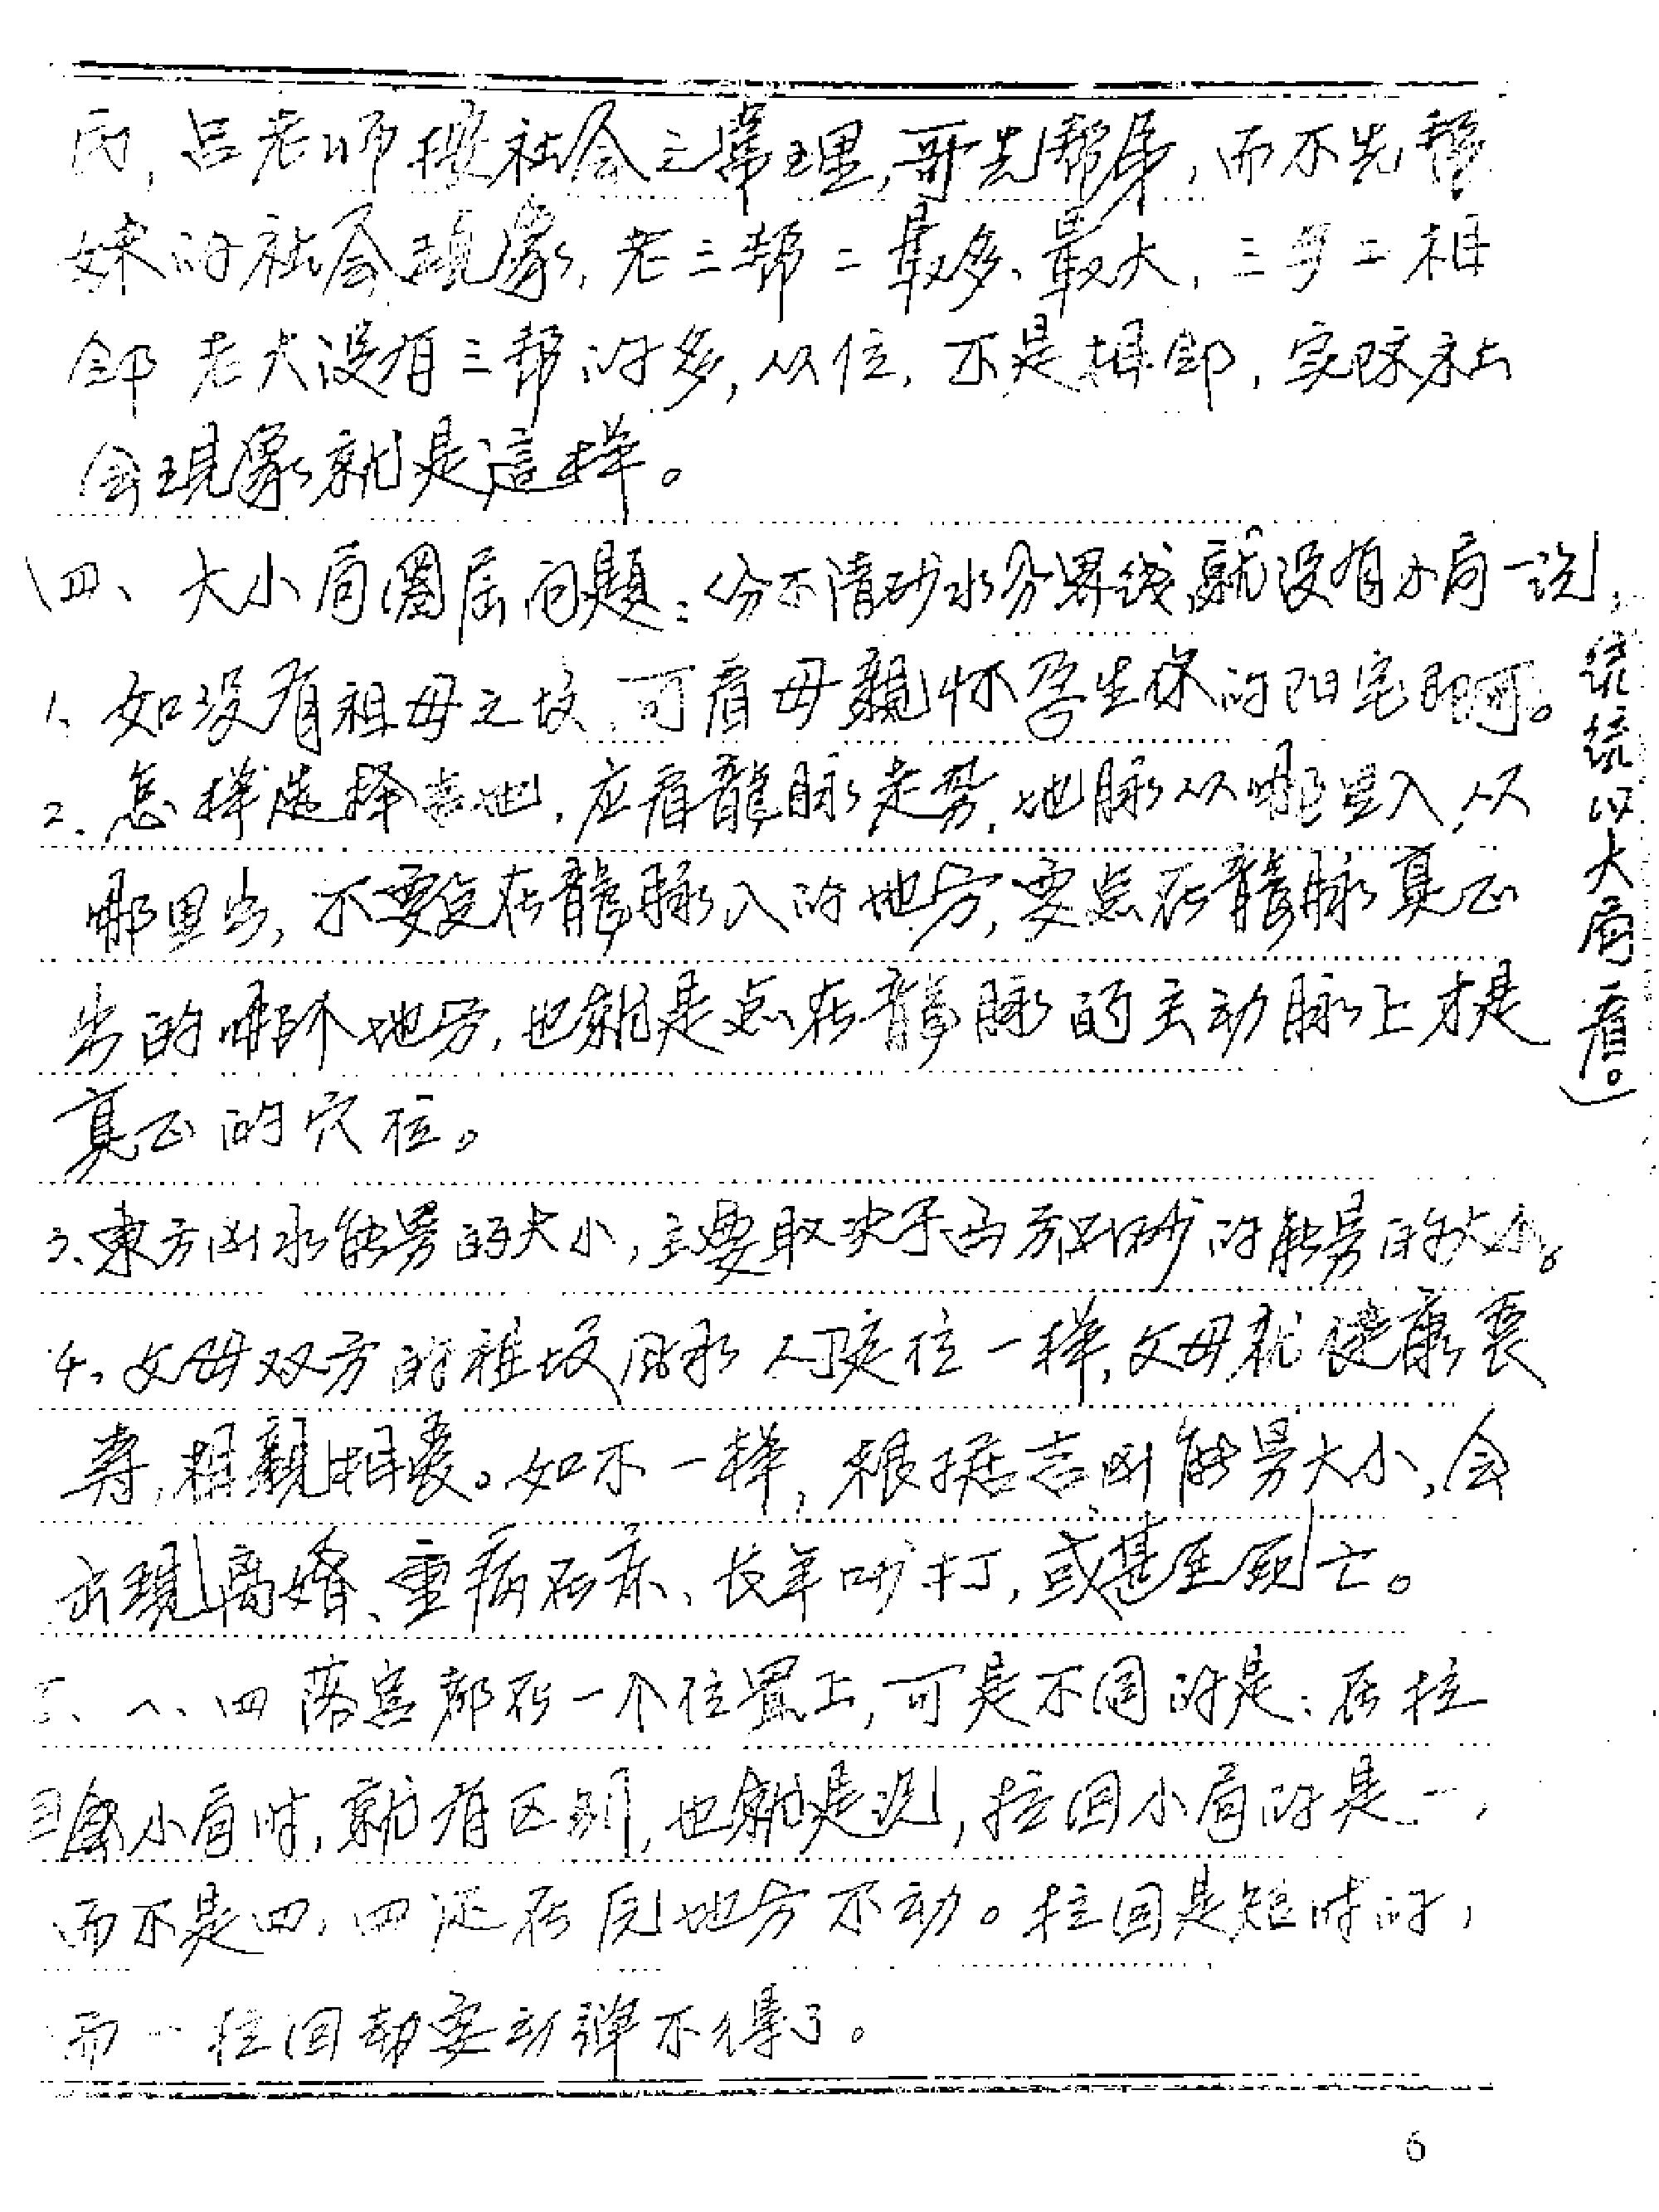 吕老师按社会之常理,哥先帮弟,而不先帮
妹的社会现象,老三帮二最多、最大,三与二相
邻 老大没有三帮的多,从位,不是相邻,实际社
会現象就是這样。
四、大小局圈层问题:分不清砂水分界线就没有小局一说,
统统以大局看。)
1、如没有祖母之坟,可看母親怀孕生你的阳宅即可。
2、怎样选择吉地,应看龍脉走势,地脉从哪里入,从
哪里出,不要定在龍脉入的地方,要点在龍脉真正
出的哪个地方,也就是点在龍脉的主动脉上才是
真正的穴位。
3、東方凶水能量的大小,主要取决于西方凶砂的能量的大小。
4、父母双方的祖坟風水 位一样,父母就健康長
寿,相親相爱。如不一样,根据吉凶能量大小,会
出現离婚、重病在床、长年吵打,或甚至死亡。
一、四落宫都在一个位置上,可是不同的是:在拉
回小局时,就有区别,也就是说,拉回小局的是一,
而不是四,四还在原地方不动。拉回是短时的,
而一拉回动弹不得了。
6